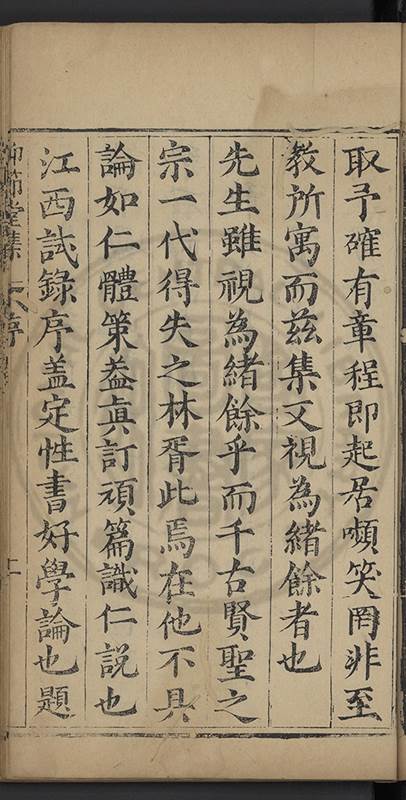 取予確有章程即起居嚬笑罔非至
教所寓而茲集又視為緒餘者也
先生雖視為緒餘乎而千古賢聖之
宗一代得失之林胥此焉在他不具
論如仁體策葢眞訂頑篇識仁說也
江西試錄序盖定性書好學論也題
仰節堂集 序